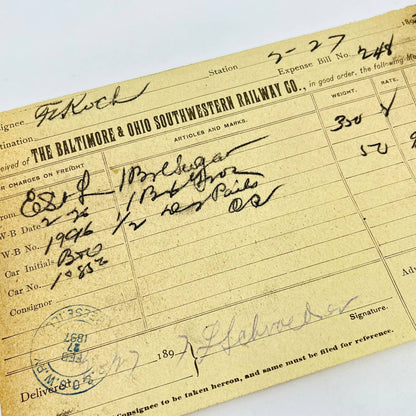 Station 2-27 189
signee Fr Koch Expense Bill No. 248
ived of THE BALTIMORE & OHIO SOUTHWESTERN RAILWAY CO., in good order, the following
CHARGES ON FREIGHT ARTICLES AND MARKS. WEIGHT. RATE.
From E St L 1 Brl Sugar 350 8
W-B Date 2-26 1 Bx 50
W-B No. 1996 1/2 Dz Pails
Car Initials B&O
Car No. 10852
Consignor
FEB 27 1897
B & O S. W. RY
Delivered 27 1897 L Schroeder
Signature.
Consignee to be taken hereon, and same must be filed for reference.